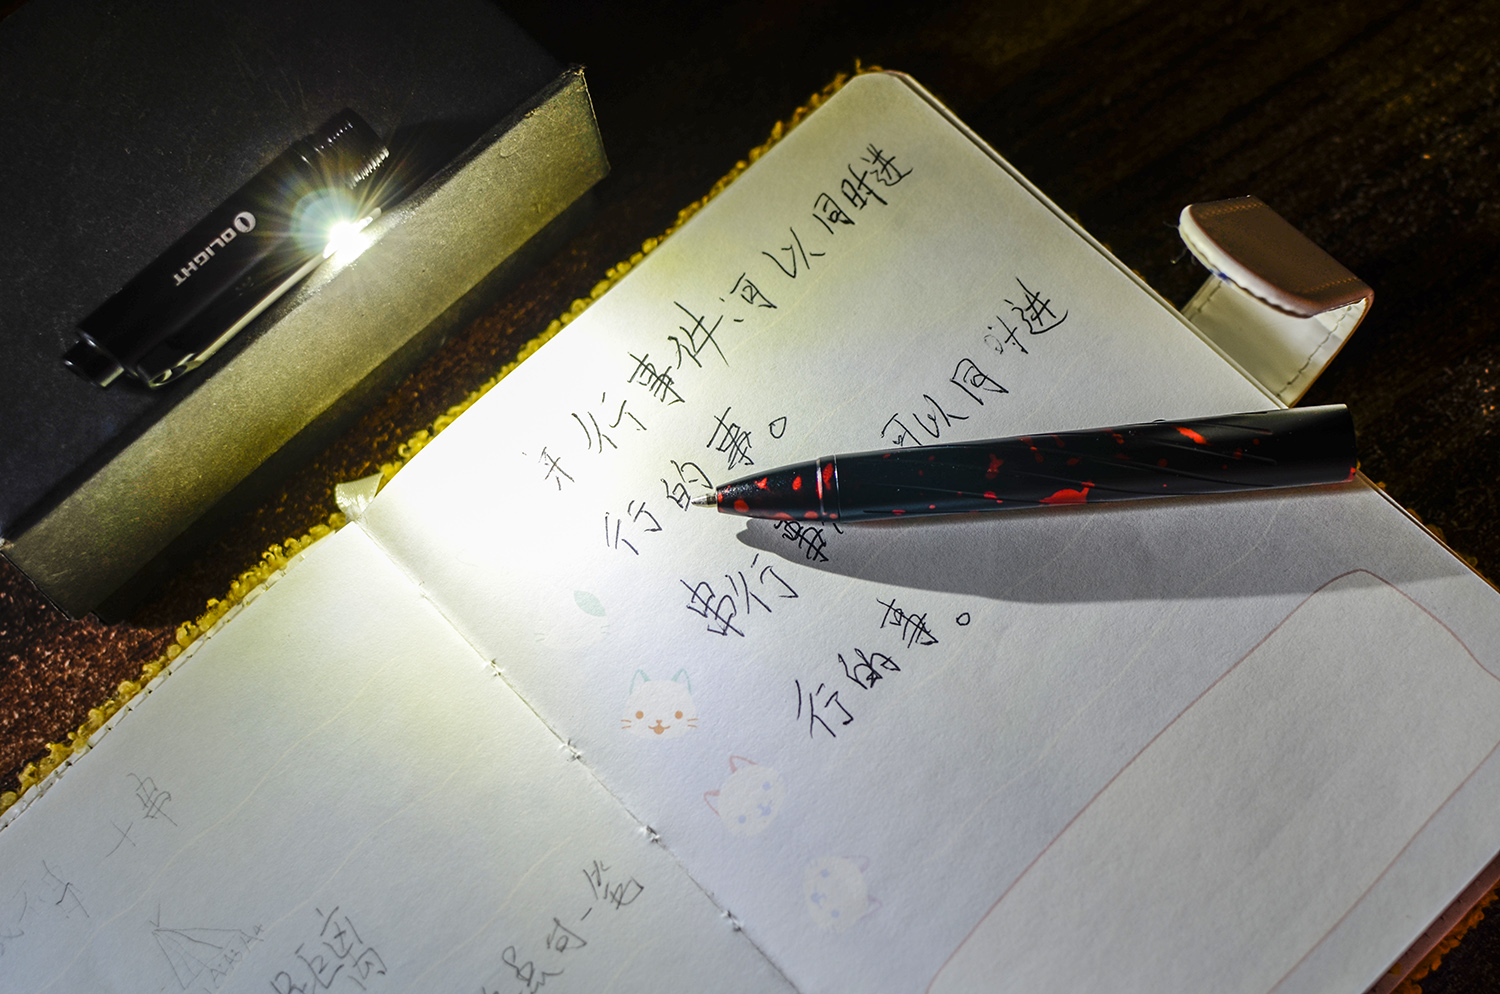 OLIGHT
并行事件可以同时进
行的事。
串行事 可以同时进
行的事。
十串
距离
一笔